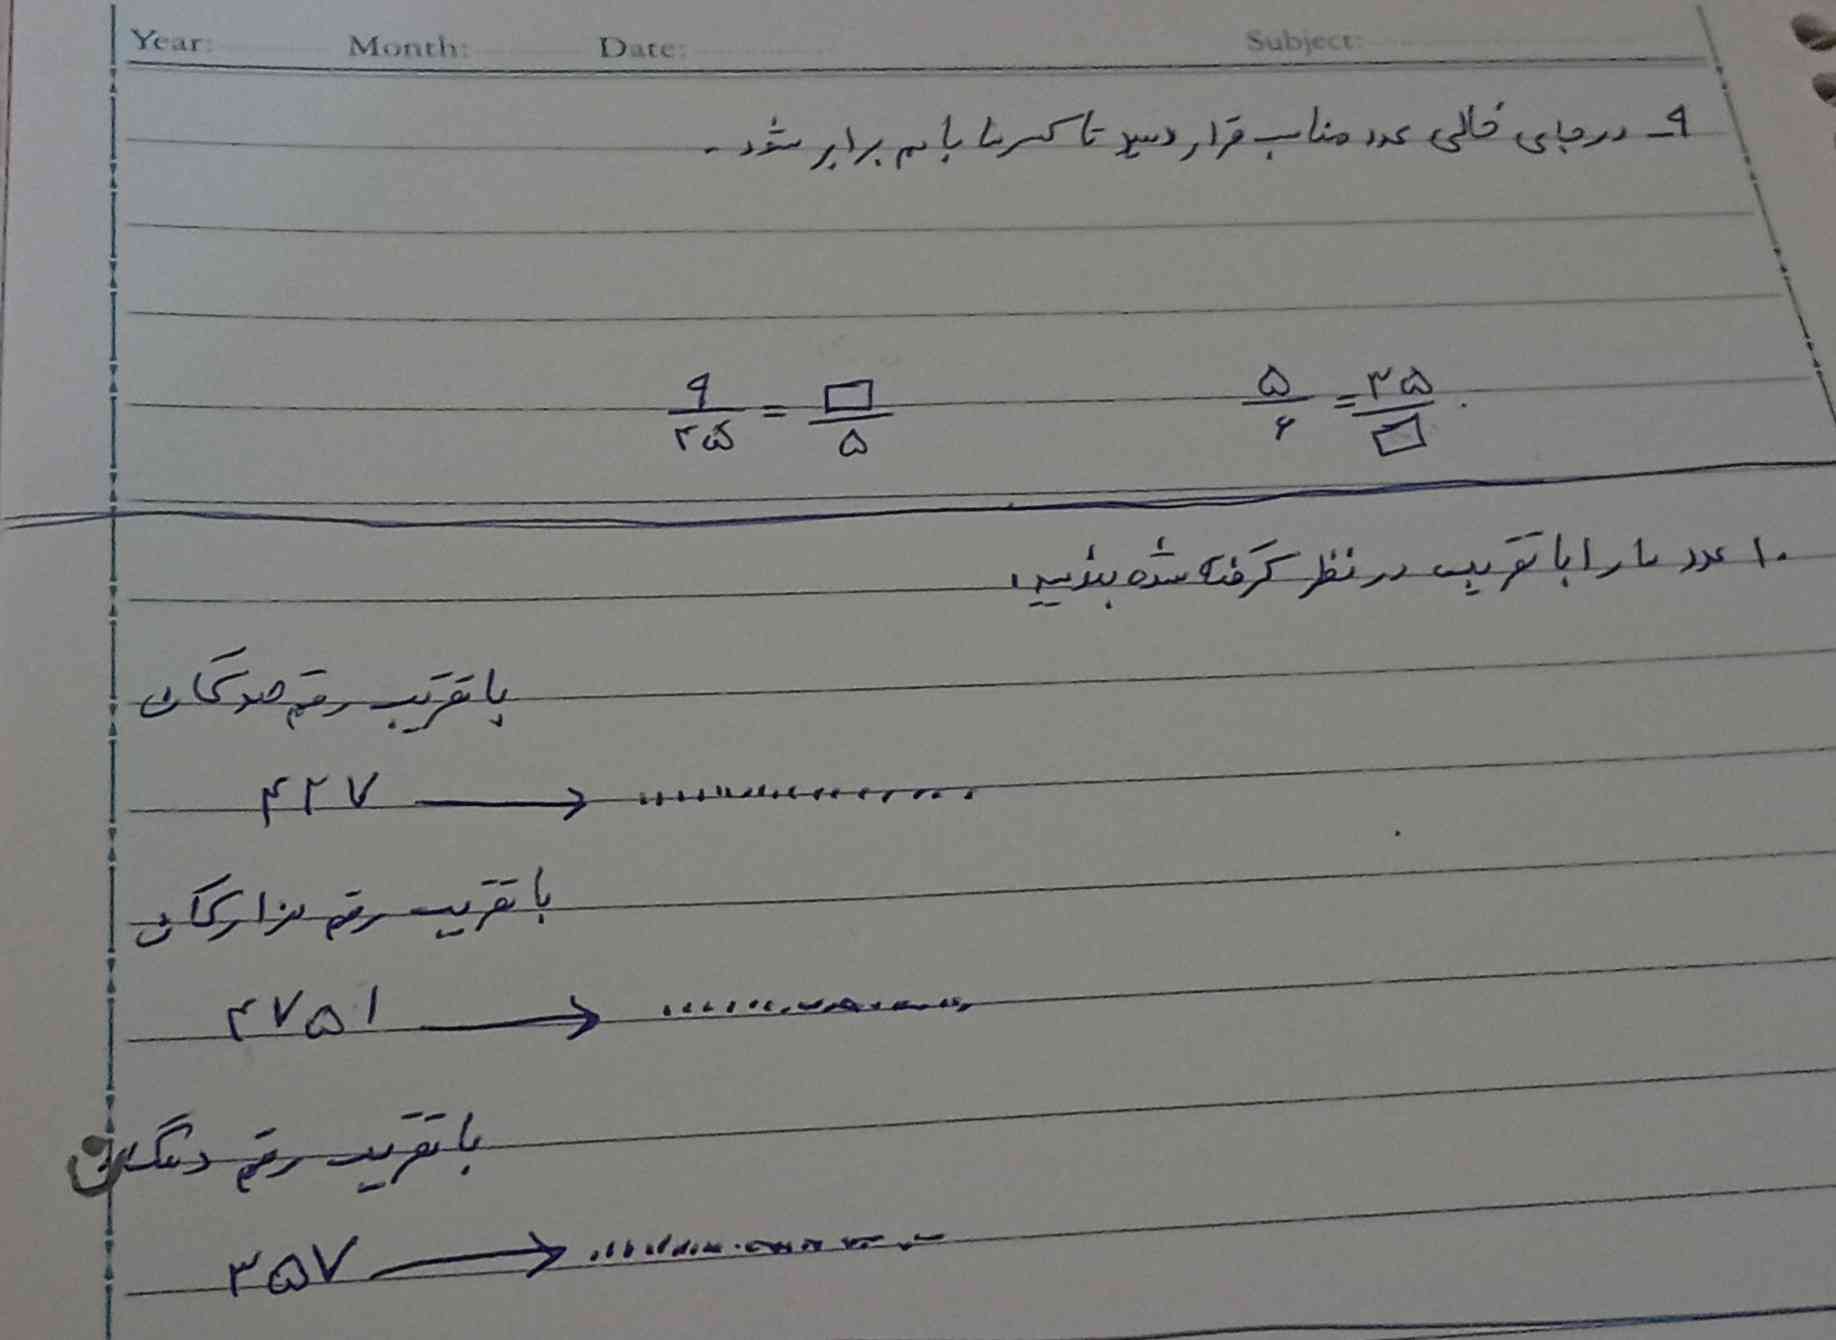 Year: Month: Date: Subject:
۹- در جای خالی عدد مناسب قرار دهید تا کسرها با هم برابر شود.
۹/۴۵ = □/۵ ۵/۶ = ۳۵/□
۱۰ عدد ها را با تقریب در نظر گرفته شده بنویسید.
با تقریب رقم صدگان
۴۲۷ → ................
با تقریب رقم هزارگان
۴۷۵۱ → ................
با تقریب رقم دهگان
۳۵۷ → ................